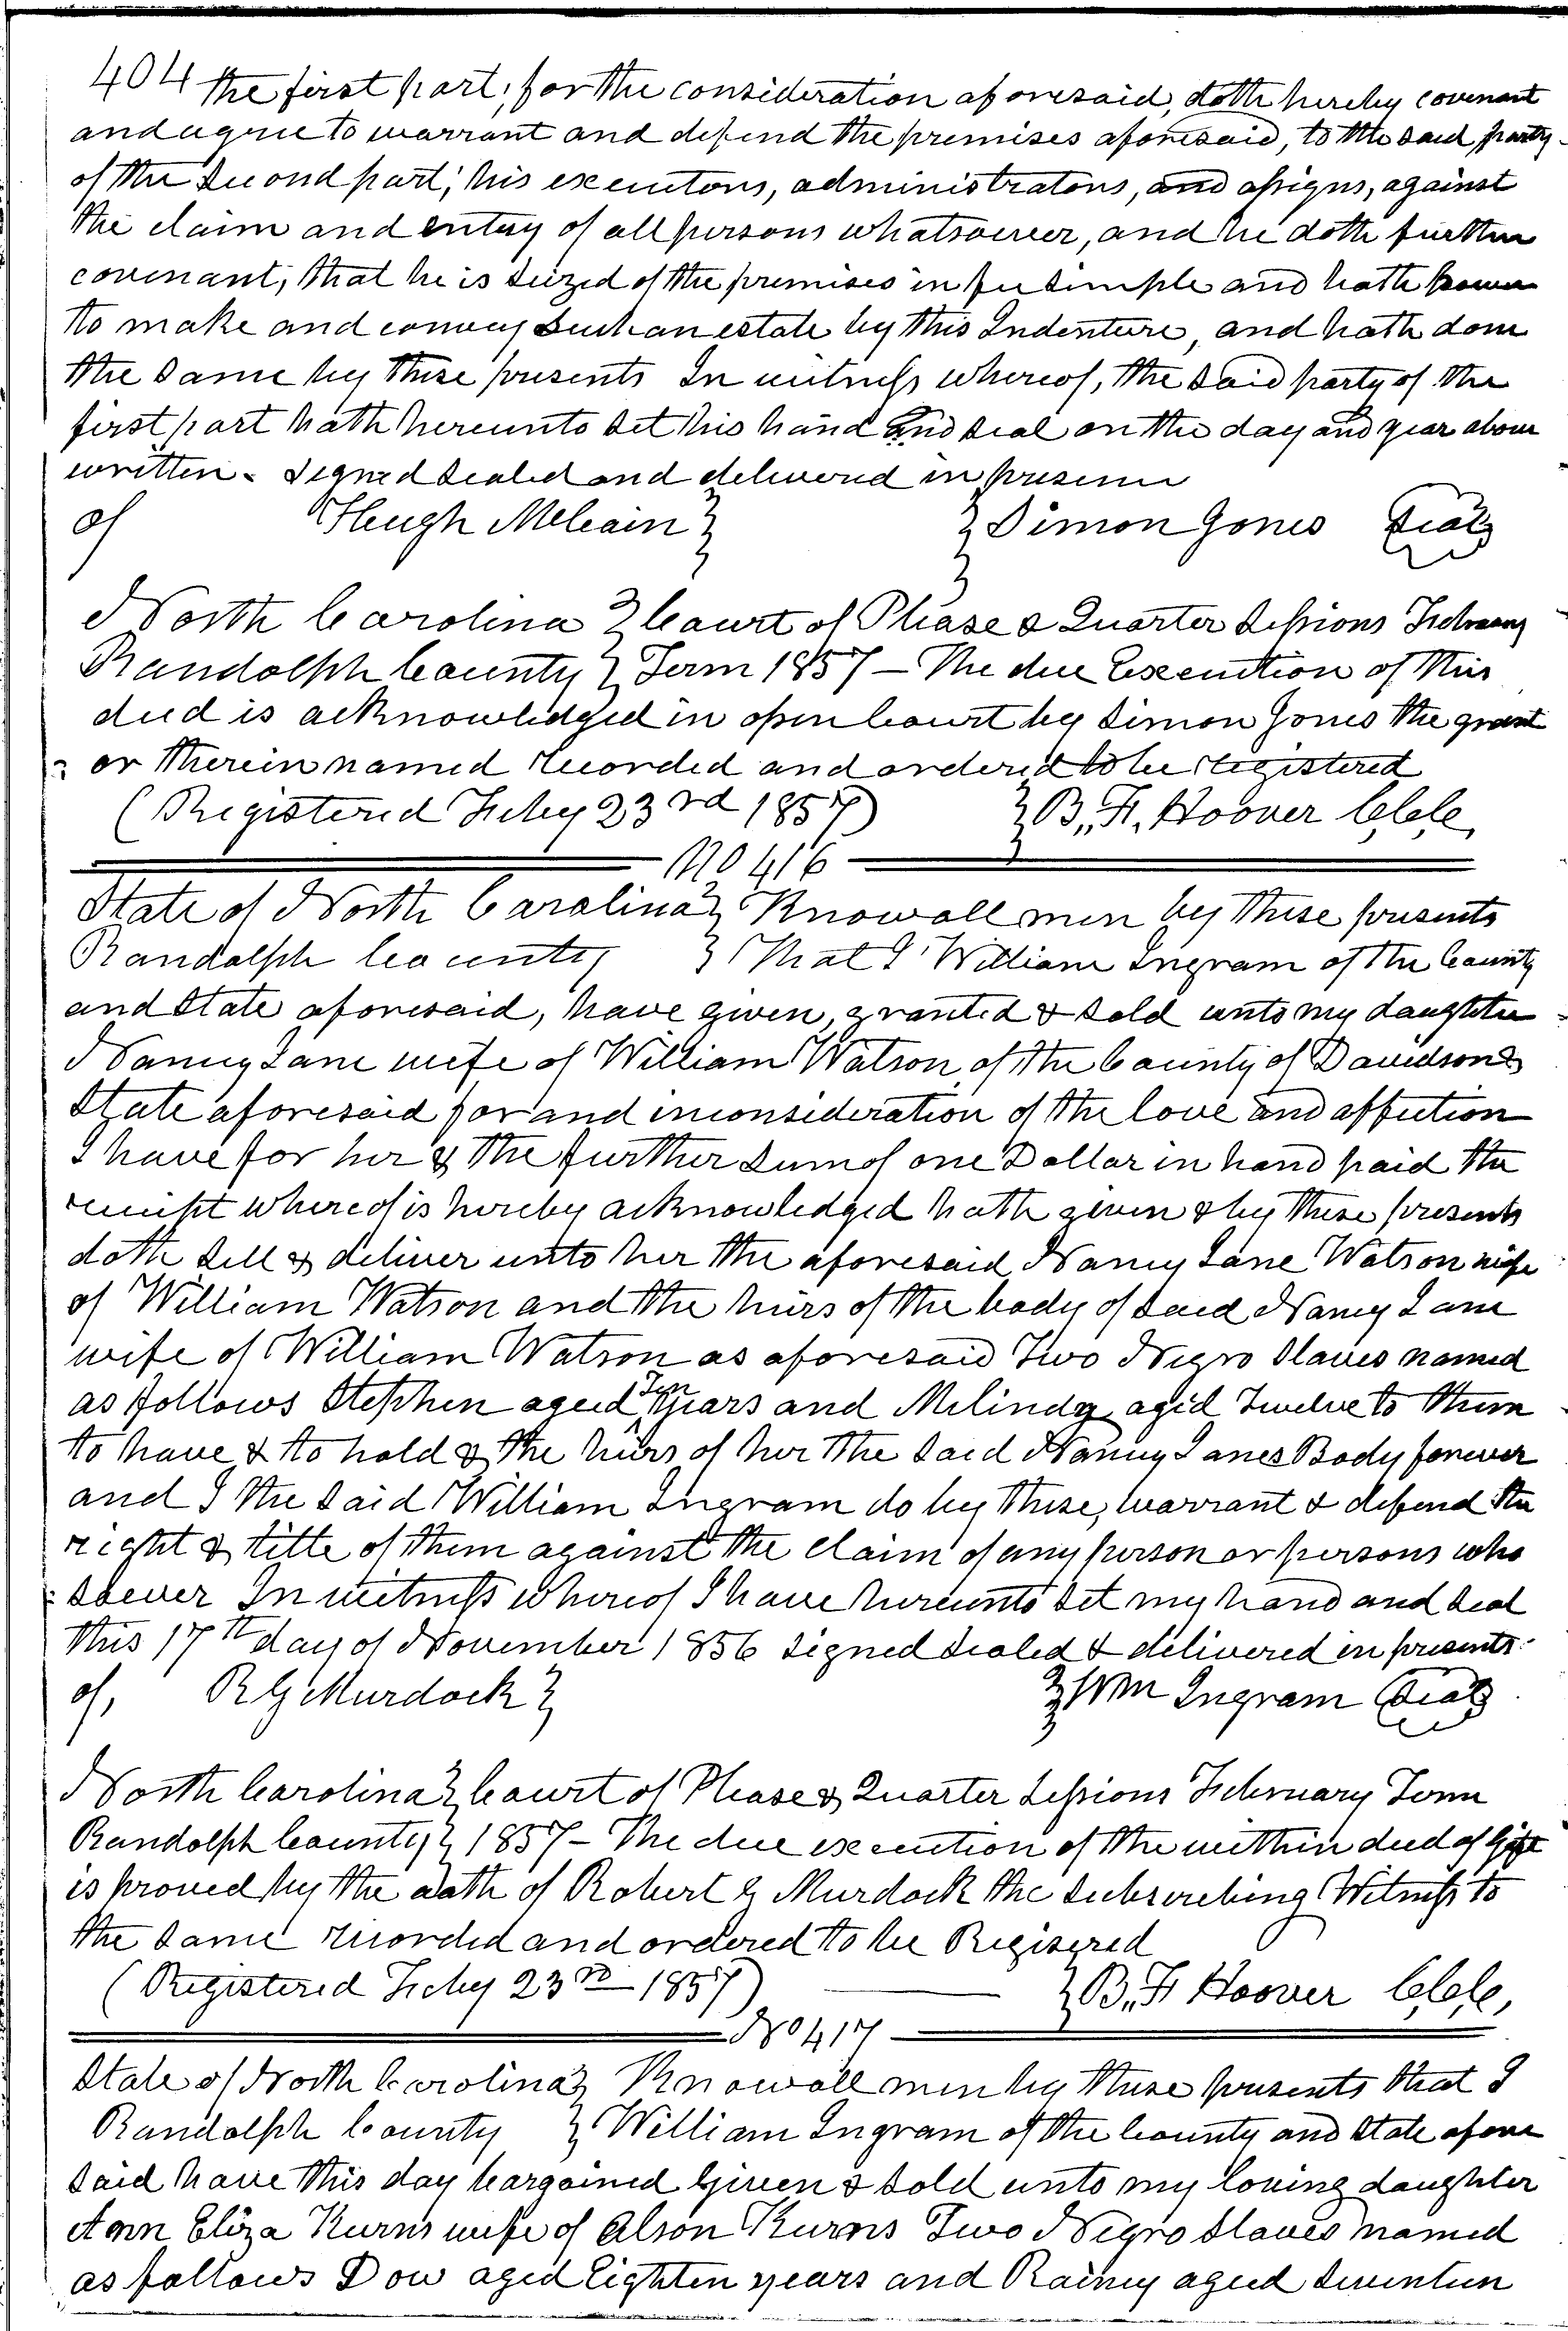 404 the first part, for the consideration aforesaid, doth hereby covenant
and agree to warrant and defend the premises aforesaid, to the said party
of the second part, his executors, administrators, and assigns, against
the claim and entry of all persons whatsoever, and he doth further
covenant, that he is seized of the premises in fee simple and hath power
to make and convey such an estate by this Indenture, and hath done
the same by these presents In witness whereof, the said party of the
first part hath hereunto set his hand and seal on the day and year above
written. Signed sealed and delivered in presence
of Hugh McCain } } Simon Jones Seal
North Carolina } Court of Please & Quarter Sessions February
Randolph County } Term 1857 – The due Execution of this
deed is acknowledged in open Court by Simon Jones the grant
or therein named recorded and ordered to be registered
(Registered Feby 23rd 1857) } B,, F, Hoover C,C,C,
No 416
State of North Carolina } Know all men by these presents
Randolph County } That I William Ingram of the County
and State aforesaid, have given, granted & sold unto my daughter
Nancy Jane wife of William Watson of the County of Davidson &
State aforesaid for and in consideration of the love and affection
I have for her & the further sum of one Dollar in hand paid the
receipt where of is hereby acknowledged hath given & by these presents
doth sell & deliver unto her the aforesaid Nancy Jane Watson wife
of William Watson and the heirs of the body of said Nancy Jane
wife of William Watson as aforesaid Two Negro Slaves named
as follows Stephen aged Ten years and Melinda aged Twelve to them
to have & to hold & the heirs of her the said Nancy Janes Body forever
and I the said William Ingram do by these, warrant & defend the
right & title of them against the claim of any person or persons who
soever In witness whereof I have hereunto set my hand and seal
this 17th day of November 1856 signed sealed & delivered in presents
of, R G Murdock } } Wm Ingram Seal
North Carolina } Court of Please & Quarter Sessions February Term
Randolph County } 1857 – The due execution of the within deed of Gift
is proved by the oath of Robert G Murdock the subscribing Witness to
the same recorded and ordered to be Regisered
(Registered Feby 23rd 1857) } B,, F Hoover C,C,C,
No 417
State of North Carolina } Know all men by these presents that I
Randolph County } William Ingram of the County and State afore
said have this day bargained Given & sold unto my loving daughter
Ann Eliza Kurns wife of Alson Kurns Two Negro Slaves named
as follows Dow aged Eighten years and Rainey aged seventeen